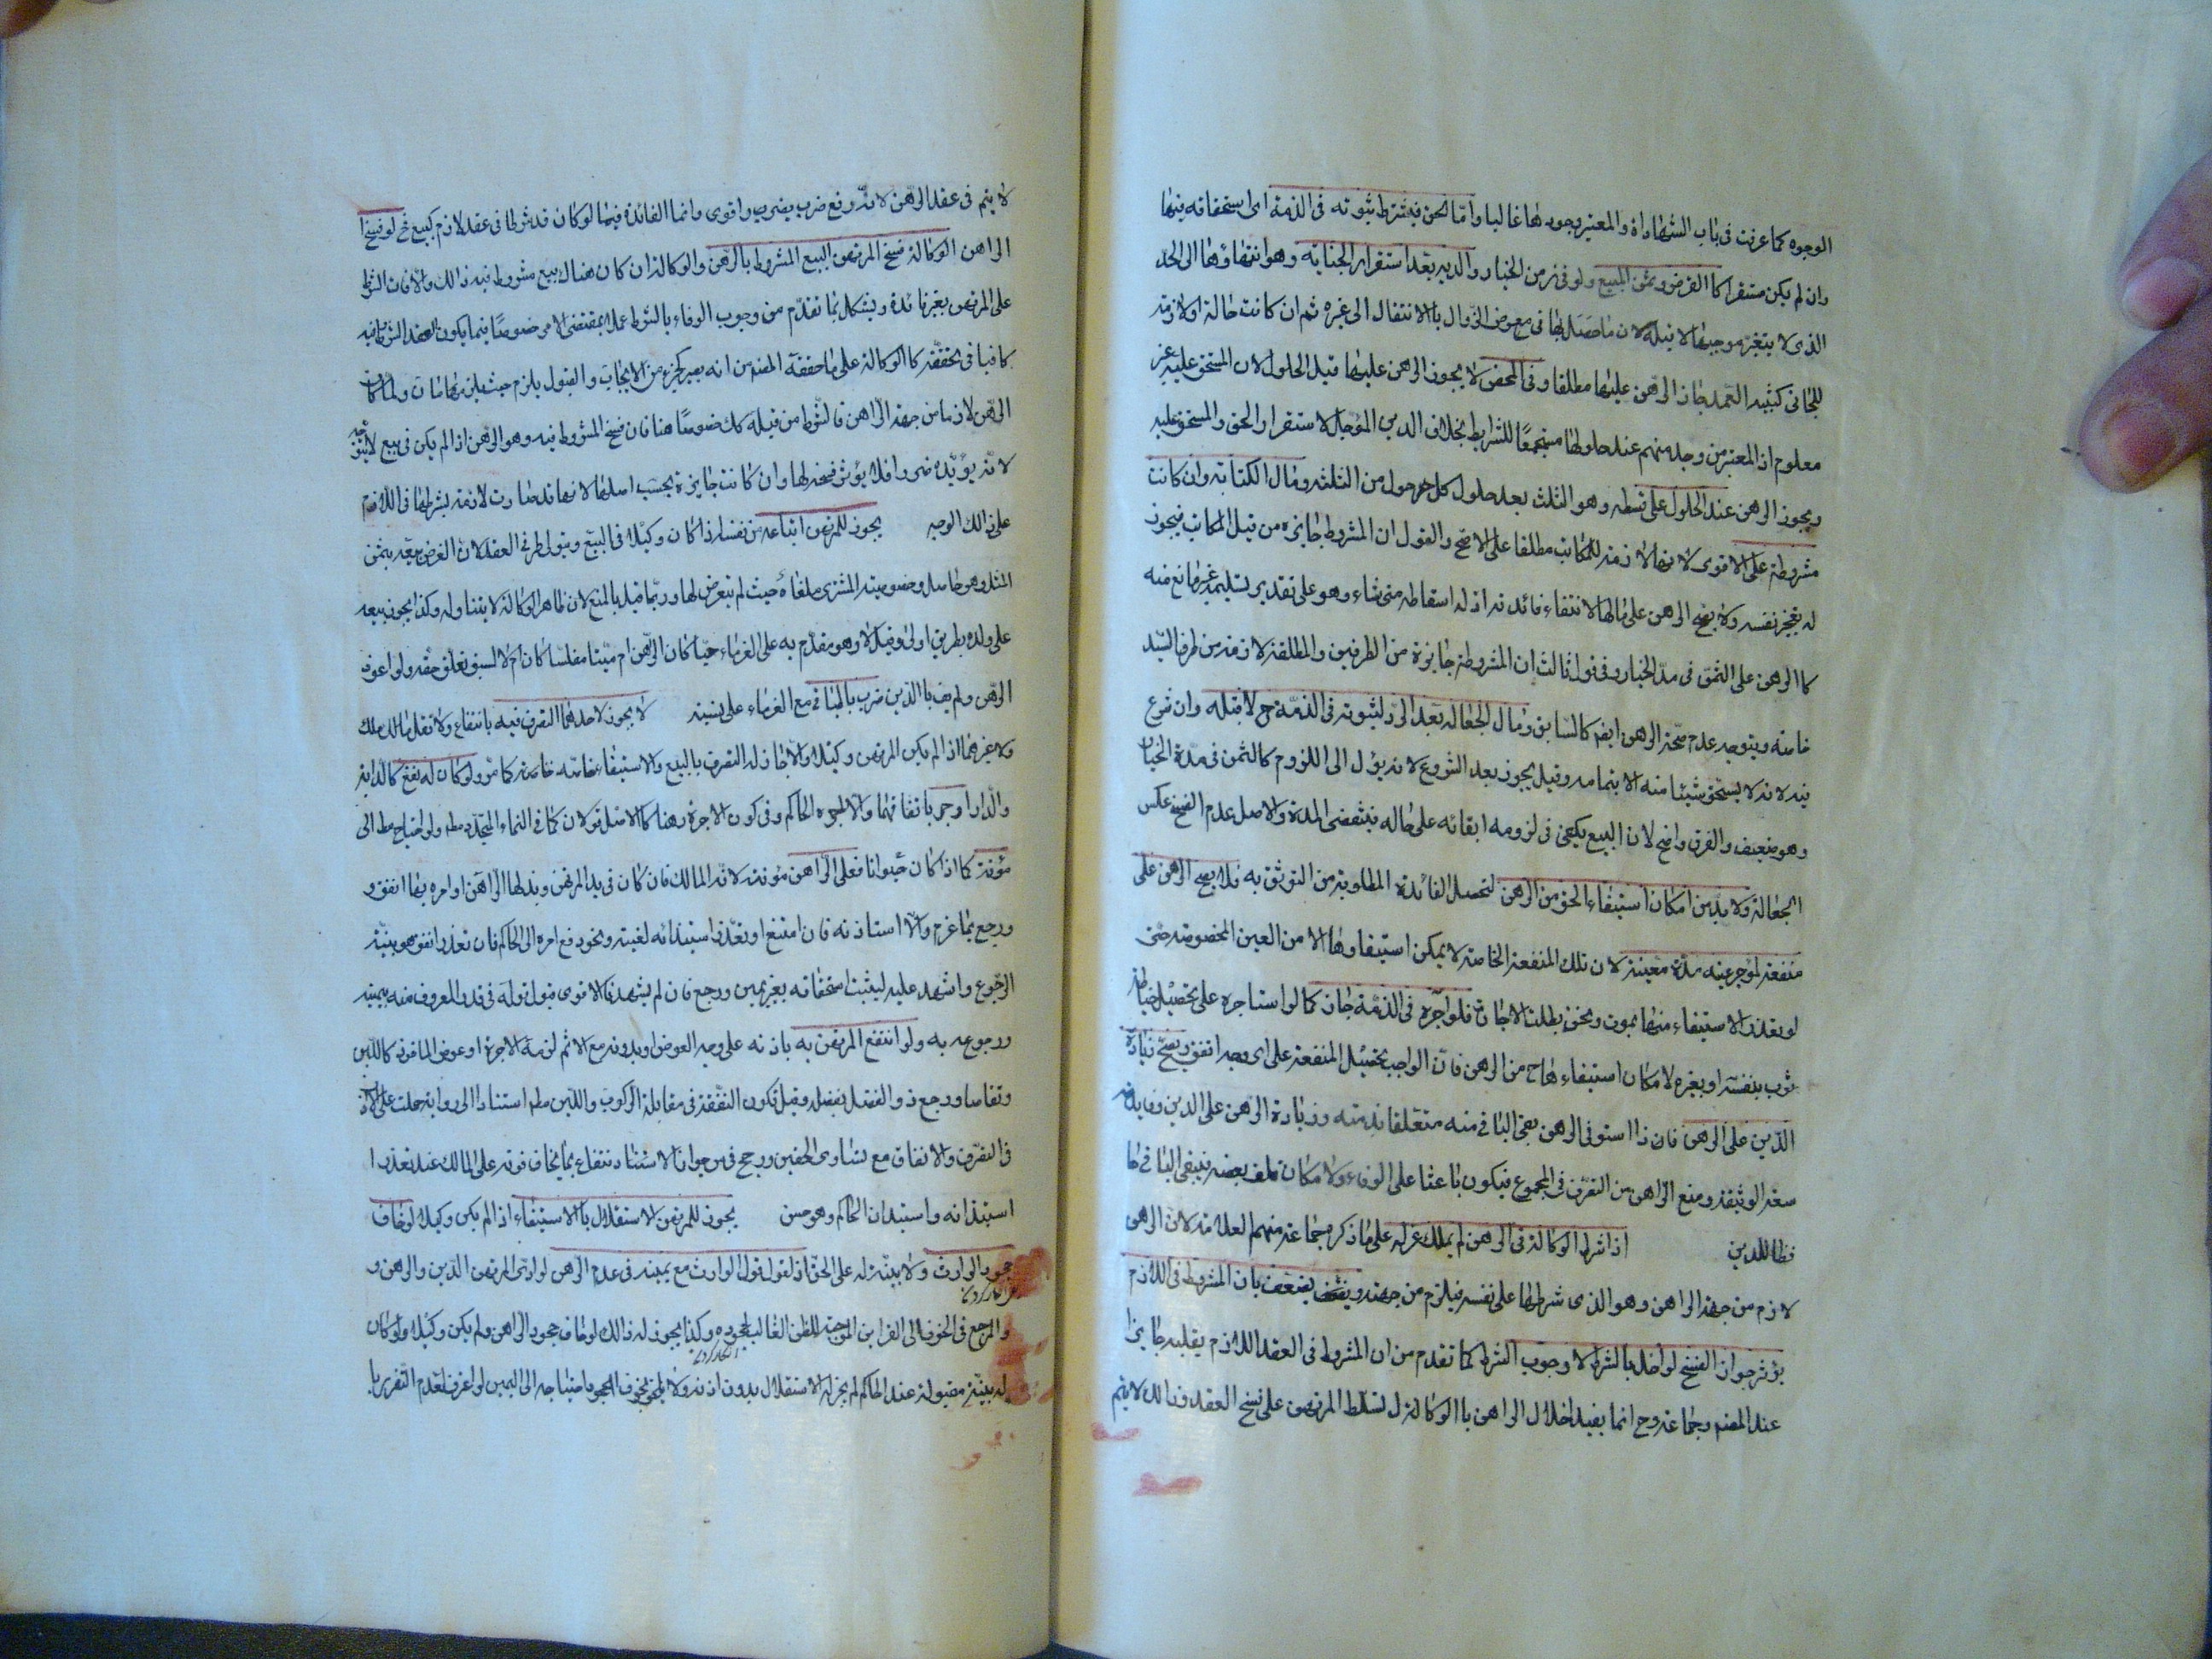 الوجوه كما عرفت فى باب الشهاداة والمعتبر وجودها غالبا وامّا الحق فيشترط ثبوته فى الذمة اى استحقاقه فيها
وان لم يكن مستقرا كا القرض وثمن المبيع ولو فى زمن الخيار والدية بعد استقرار الجناية وهو انتهاؤها الى الحدّ
الذى لا يتغيّر موجبها لا قبله لان ما حصل بها فى معرض الزوال با الانتقال الى غيره ثم ان كانت حالة او لازمة
للجانى كشبيه العمد جاز الرّهن عليها مطلقا وفى المحض لا يجوز الرهن عليها قبل الحلول لان المستحق عليه غير
معلوم اذ المعتبر من وجد منهم عند حلولها مستجمعًا للشرايط بخلاف الدين المؤجل لاستقرار الحق والمستحق عليه
ويجوز الرهن عند الحلول على قسطه وهو الثلث بعد حلول كل حول من الثلثه ومال الكتابة وان كانت
مشروطة على الاقوى لانها لازمة للمكاتب مطلقا على الاصح والقول ان المشروط جايزة من قبل المكاتب فيجوز
له تعجيز نفسه ولا يصح الرهن على مالها لانتفاء فائدته اذ له اسقاطه متى شاء وهو على تقدير تسليمه غير مانع منه
كا الرهن على الثمن فى مدّ الخيار وفى قول ثالث ان المشروطة جايزة من الطرفين والمطلقة لازمة من طرف السيّد
خاصة ويتوجه عدم صحّة الرهن ايضه كالسّابق ومال الجعالة بعد الردّ لثبوته فى الذمّة ح لا قبله وان شرع
فيه لانه لا يستحق شيئا منه الا بتمامه وقيل يجوز بعد الشروع لانه يؤل الى اللزوم كالثمن فى مدّة الخيار
وهو ضعيف والفرق واضح لان البيع يكفى فى لزومه ابقائه على حاله فتنقضى المدة والاصل عدم الفسخ عكس
الجعالة ولابد من امكان استيفاء الحق من الرهن لتحصل الفائدة المطلوبة من التوثق به فلا يصح الرهن على
منفعة لمؤجر عينه مدّة معينة لان تلك المنفعة الخاصة لا يمكن استيفاوها الا من العين المخصوصة حتى
لو تعذر الاستيفاء منها بموت ونحوه بطلت الاجارة فلو آجره فى الذمّة جاز كما لو استاجره على تحصيل خياطة
ثوب بنفسه او بغيره لامكان استيفاء ها ح من الرهن فانّ الواجب تحصيل المنفعة على اى وجه اتفق ويصح زيادة
الدّين على الرهن فان ذا استوفى الرهن بقى الباقى منه متعلقا بذمته وزيادة الرّهن على الدين وفايدته
سعة الوثيقة ومنع الرّاهن من التصرّف فى المجموع فيكون باعثا على الوفاء ولامكان تلف بعضه فيبقى الباقى حا
فظا للدين اذا شرط الوكالة فى الرهن لم يملك عزله على ما ذكره جماعة منهم العلامة لانّ الرهن
لازم من جهة الراهن وهو الذى شرطها على نفسه فيلزم من جهته ويضعف بان المشروط فى اللازم
يؤثر جواز الفسخ لو اخل بالشرط لا وجوب الشرط كما تقدم من ان المشروط فى العقد اللازم يقلبه جايزا
عند المصنم وجماعة وح انما يفيد اخلال الراهن با الوكالة ل تسلّط المرتهن على فسخ العقد وذالك لا يتم
لا يتم فى عقد الرّهن لانّه دفع ضرب بضرب واقوى وانما الفائدة فيها لو كان قد شرطا فى عقد لازم كبيع فح لو فسخ ا
الراهن الوكالة فسخ المرتهن البيع المشروط بالرّهن والوكالة ان كان هناك بيع مشروط فيه ذالك والّا فات الشرط
على المرتهن بغير فائدة ويشكل بما تقدّم من وجوب الوفاء بالشرط عملا بمقتضى الامر خصوصًا فيما يكون العقد الشرط فيه
كافيا فى تحققه كا الوكالة على ما حققه المصنم من انه يصير كجزء من الايجاب والقبول يلزم حيث يلزمهما ولمّا كان
الرّهن لازما من جهة الرّاهن فالشّرط من قبله كك خصوصًا هنا فان فسخ المشروط فيه وهو الرّهن اذا لم يكن فى بيع لا يتوجه
لانّه يؤيّده ضررا فلا يؤثر فسخه لها وان كانت جايزة بحسب اصلها لانها قد صارت لازمة بشرطها فى اللازم
على ذالك الوجه يجوز للمرتهن ابتياعه من نفسه اذا كان وكيلا فى البيع ويتولى طرفى العقد لانّ الغرض بيعه بثمن
المثل وهو حاصل وخصوصيته المشترى ملغاة حيث لم يتعرض لها وربّما قيل بالمنع لان ظاهر الوكالة لا يتناوله وكذا يجوز بيعه
على ولده بطريق اولى وقيل لا وهو مقدّم به على الغرماء حيّا كان الرّاهن ام ميّتا مفلسا كان ام لا لسبق تعلق حقه ولو اعوز
الرّهن ولم يف با الدّين ضرب بالباقى مع الغرماء على نسبته لا يجوز لاحدهما التصرف فيه بانتفاع ولا نقل مالك ملك
ولا غيرهما اذا لم يكن المرتهن وكيلا والّا جاز له التصرف بالبيع والاستيفاء خاصة كامرّ ولو كان له نفع كالدابة
والدّار اوجر باتفاقهما والّا اجره الحاكم وفى كون الاجرة رهنا كالاصل قولان كما فى النماء المتجدّد مطم ولو احتاج مط الى
مؤنة كا اذا كان حيوانا فعلى الرّاهن مؤنته لانّه المالك فان كان فى يد المرتهن وبذلها الرّاهن او امره بها انفق و
ورجع بما غرم والّا استاذنه فان امتنع او تعذّر استيذانه لغيبته ونحوه رفع امره الى الحاكم فان تعذر انفق هو بنيّة
الرّجوع واشهد عليه ليثبت استحقاقه بغير يمين ورجع فان لم يشهد فالاقوى قبول قوله فى قدر المعروف منه بيمينه
ورجوعه به ولو انتفع المرتهن به باذنه على وجه العوض او بدونه مع الاثم لزمه الاجرة او عوض الماخوذ كاللّبن
وتقاصا ورجع ذو الفضل بفضله وقيل تكون النفقة فى مقابلة الركوب واللّبن مطم استنادا الى رواية حملت على الاذن
فى التصرّف والانفاق مع تساوى الحقين ورجح فى س جواز الانتفاع بما يخاف فوته على المالك عند تعذر ا
استيذانه واستيذان الحاكم وهو حسن يجوز للمرتهن الاستقلال بالاستيفاء اذا لم يكن وكيلا لو خاف
جحود الوارث ولا بيّنة له على الحق اذ القول قول الوارث مع يمينه فى عدم الرّهن لو ادّعى المرتهن الدّين والرهن و
والمرجع فى الخوف الى القراين الموجبة للظن الغالب بجحوده وكذا يجوز له ذالك لو خاف جحود الرّاهن ولم يكن وكيلا ولو كان
له بيّنة مقبولة عند الحاكم لم يجز له الاستقلال بدون اذنه ولا يلحق بخوف الجحود احتياجه الى اليمين لو اعترف لعدم التّضرر با